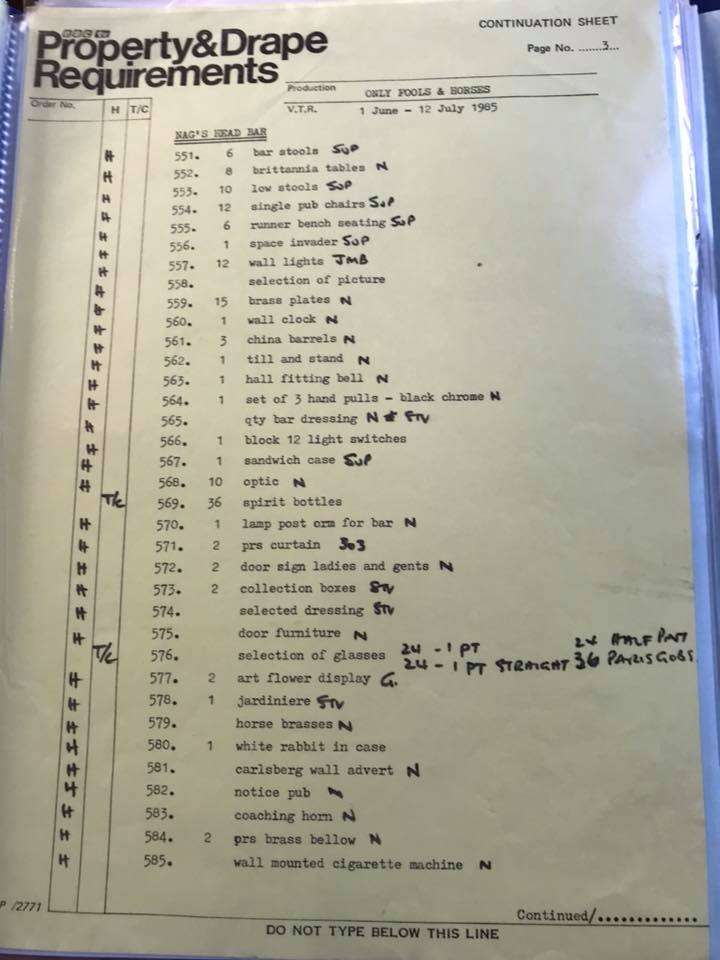 CONTINUATION SHEET
BBC tv
Property&Drape
Requirements
Page No. .......3...
Production ONLY FOOLS & HORSES
V.T.R. 1 June - 12 July 1985
Order No. H T/C
NAG'S HEAD BAR
H 551. 6 bar stools SUP
H 552. 8 brittannia tables N
H 553. 10 low stools SUP
H 554. 12 single pub chairs SUP
H 555. 6 runner bench seating SUP
H 556. 1 space invader SUP
H 557. 12 wall lights JMB
H 558. selection of picture
H 559. 15 brass plates N
H 560. 1 wall clock N
H 561. 3 china barrels N
H 562. 1 till and stand N
H 563. 1 hall fitting bell N
H 564. 1 set of 3 hand pulls - black chrome N
H 565. qty bar dressing N & STV
H 566. 1 block 12 light switches
H 567. 1 sandwich case SUP
H 568. 10 optic N
T/c 569. 36 spirit bottles
H 570. 1 lamp post orm for bar N
H 571. 2 prs curtain 303
H 572. 2 door sign ladies and gents N
H 573. 2 collection boxes STV
H 574. selected dressing STV
H 575. door furniture N
T/c 576. selection of glasses 24 - 1 PT 24 HALF PINT
24 - 1 PT STRAIGHT 36 PARIS GOBS.
H 577. 2 art flower display G.
H 578. 1 jardiniere STV
H 579. horse brasses N
H 580. 1 white rabbit in case
H 581. carlsberg wall advert N
H 582. notice pub N
H 583. coaching horn N
H 584. 2 prs brass bellow N
H 585. wall mounted cigarette machine N
P /2771
Continued/.............
DO NOT TYPE BELOW THIS LINE